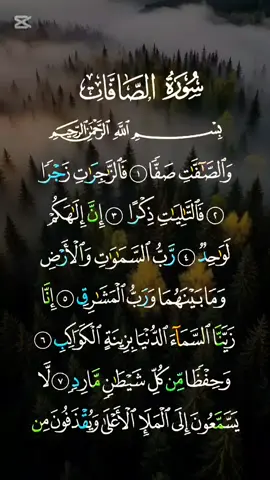 سُورَةُ الصَّافَّاتِ
بِسْمِ اللَّهِ الرَّحْمَٰنِ الرَّحِيمِ
وَالصَّٰٓفَّٰتِ صَفًّا ١ فَالزَّٰجِرَٰتِ زَجْرًا
٢ فَالتَّٰلِيَٰتِ ذِكْرًا ٣ إِنَّ إِلَٰهَكُمْ
لَوَٰحِدٌ ٤ رَّبُّ السَّمَٰوَٰتِ وَالْأَرْضِ
وَمَا بَيْنَهُمَا وَرَبُّ الْمَشَٰرِقِ ٥ إِنَّا
زَيَّنَّا السَّمَآءَ الدُّنْيَا بِزِينَةٍ الْكَوَاكِبِ ٦
وَحِفْظًا مِّن كُلِّ شَيْطَٰنٍ مَّارِدٍ ٧ لَّا
يَسَّمَّعُونَ إِلَى الْمَلَإِ الْأَعْلَىٰ وَيُقْذَفُونَ مِن